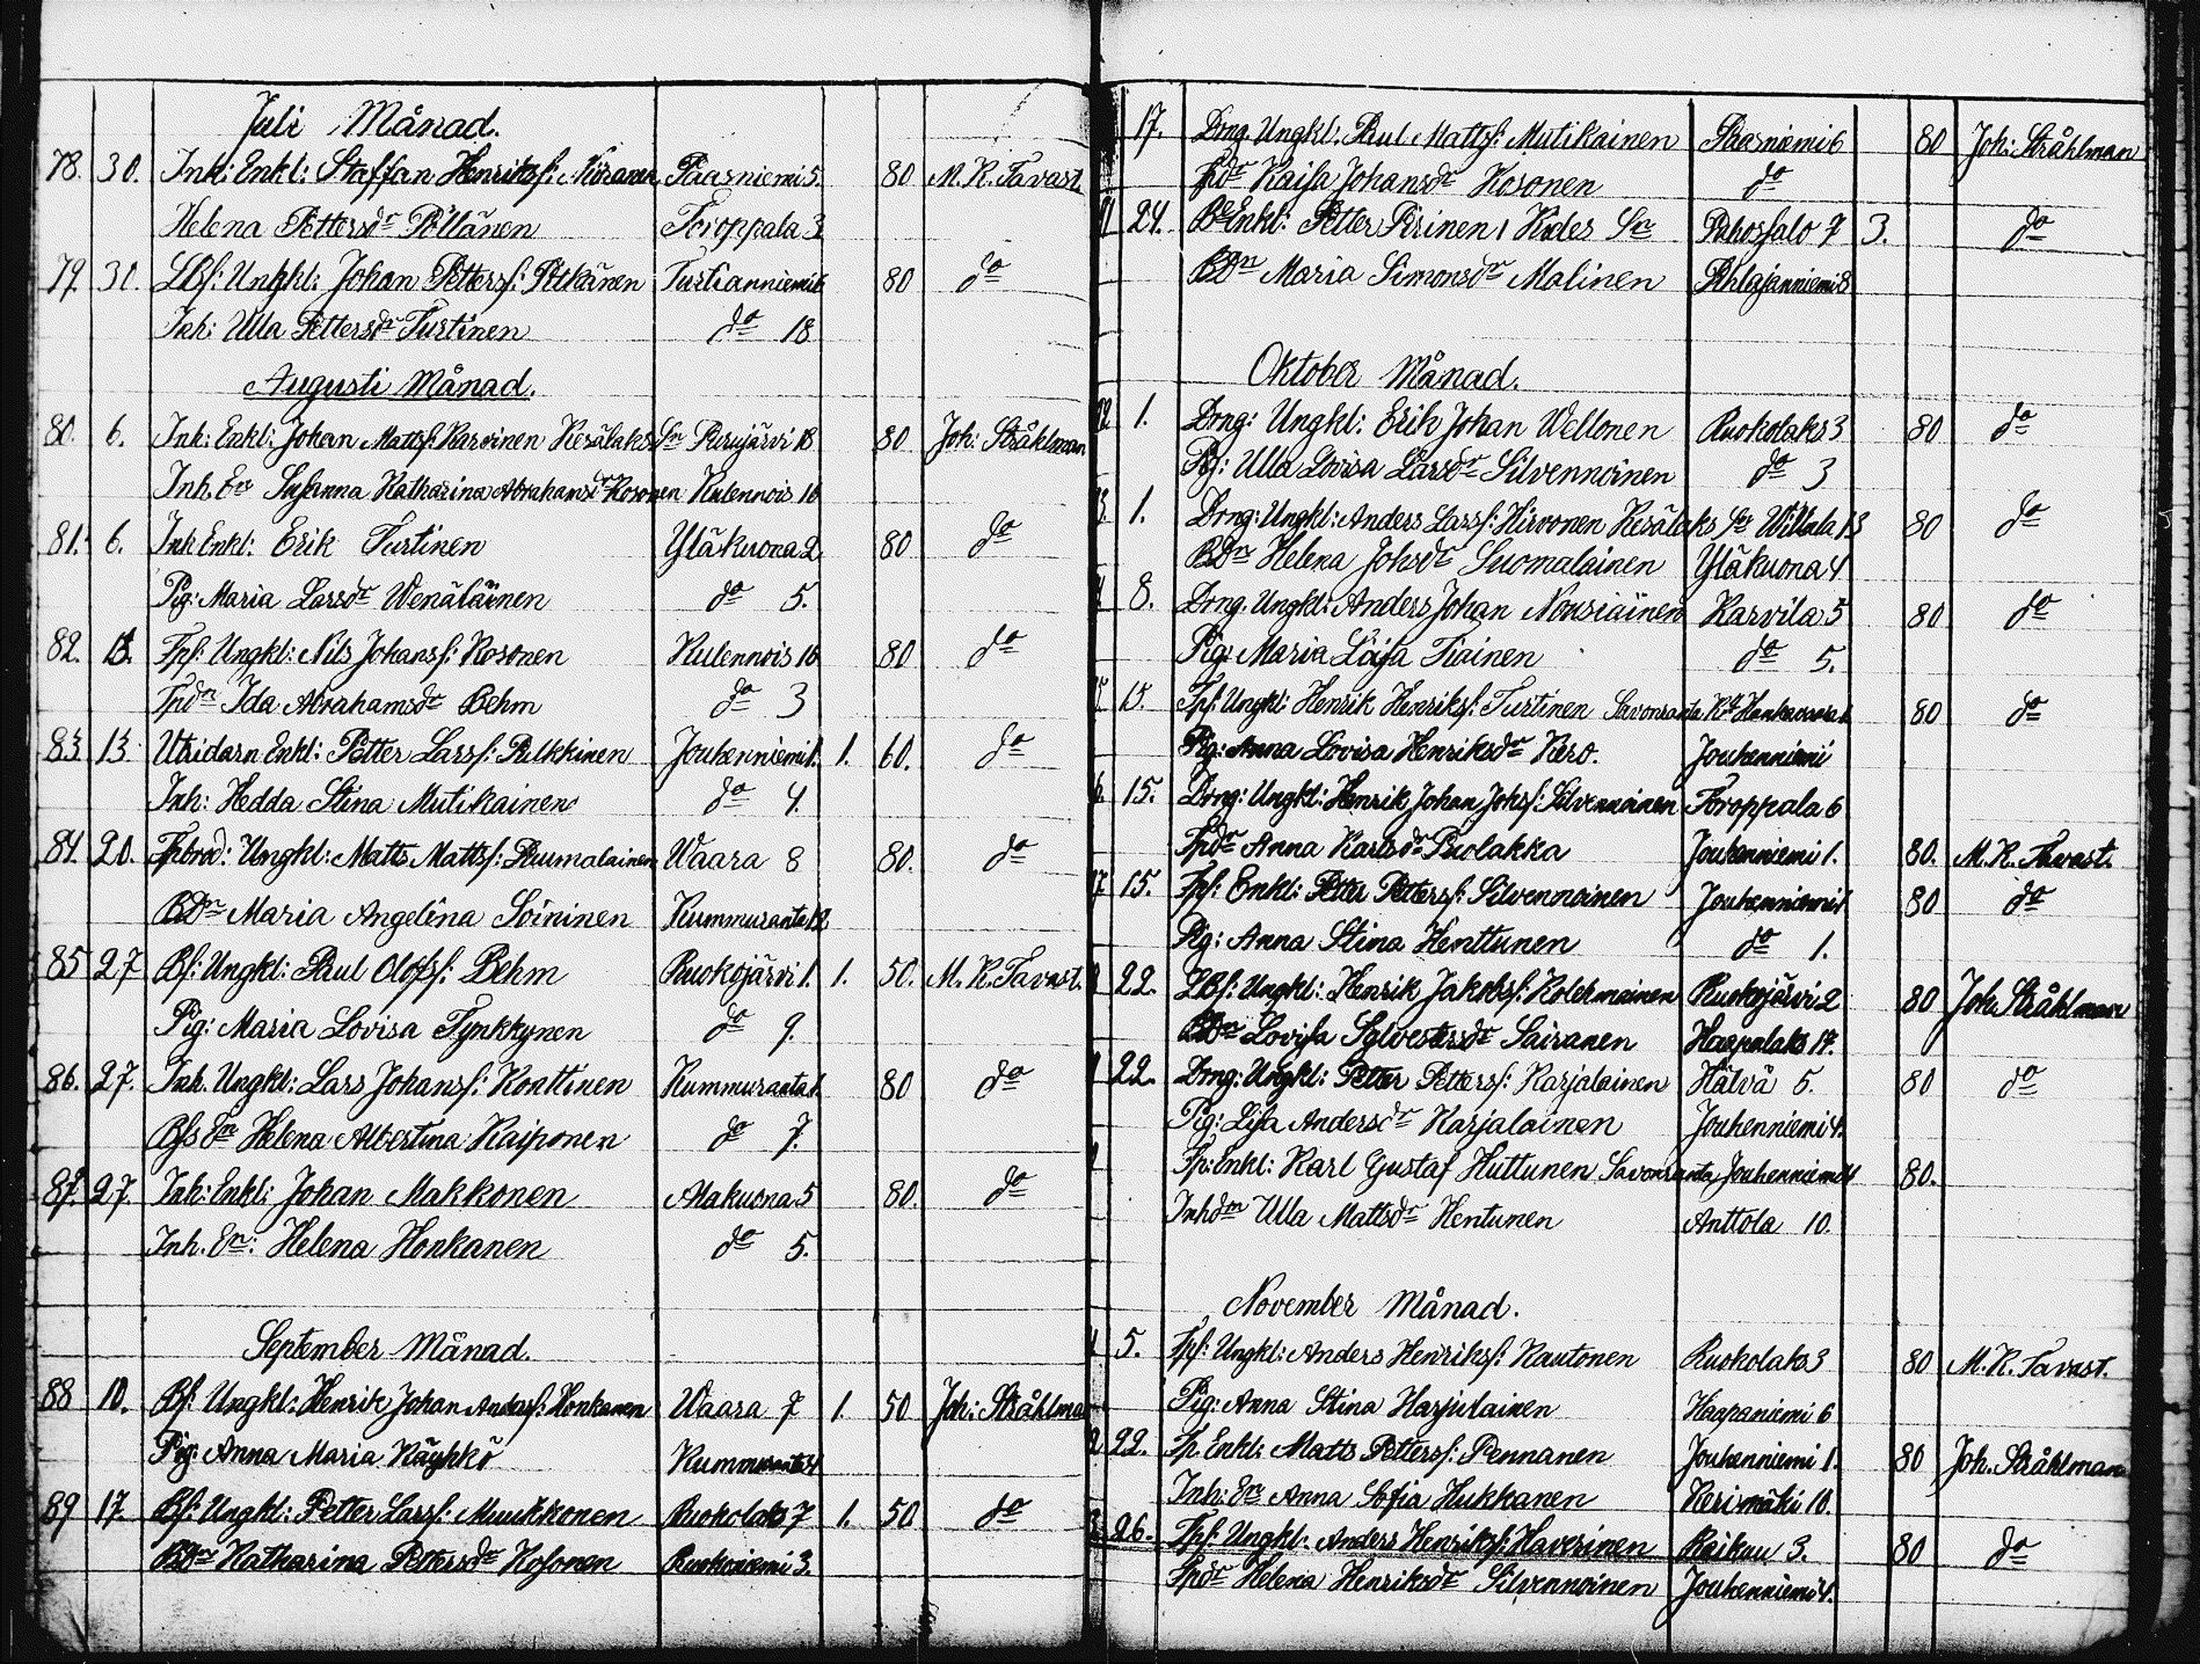 Juli Månad.
78. 30. Inh: Enkl: Staffan Henriksf: Paasniemi 5. 80 M. K. Tavast.
Helena Pettersdr Pöllänen Toroppala 3
79. 30. LBf: Ungkl: Johan Pettersf: Pitkänen Turtianniemi 80 do
Inh: Ulla Pettersdr Turtinen do 18
Augusti Månad.
80. 6. Inh: Enkl: Johan Mattsf: Karvinen Kesälaks Sn Purujärvi 18 80 Joh: Stråhlman
Inh. Er Susanna Katharina Abrahamsdr Kosonen Kulennois 16
81. 6. Inh Enkl: Erik Turtinen Yläkuona 2 80 do
Pig: Maria Larsdr Wenäläinen do 5.
82. 13. Tpf: Ungkl: Nils Johansf: Kosonen Kulennois 16 80 do
Tpdr Ida Abrahamsdr Behm do 3
83. 13. Utridarn Enkl: Petter Larsf: Pulkkinen Jouhenniemi 1. 1. 60. do
Inh: Hedda Stina Mutikainen do 4.
84. 20. Tpbrod: Ungkl: Matts Mattsf: Ruumalainen Waara 8 80. do
BDr Maria Angelina Soininen Kummuranta 12
85 27 Bf: Ungkl: Paul Olofsf: Behm Ruokojärvi 1. 1. 50. M. K. Tavast.
Pig: Maria Lovisa Tynkkynen do 9.
86. 27. Inh. Ungkl: Lars Johansf: Konttinen Kummuranta 1. 80 do
Helena Albertina Kaiponen do 7.
87. 27. Inh: Enkl: Johan Makkonen Alakuona 5 80. do
Inh. En: Helena Honkanen do 5.
September Månad.
88 10. Bf: Ungkl: Henrik Johan Andersf: Honkanen Waara 7 1. 50 Joh: Stråhlman
Pig: Anna Maria Käyhkö Kummuranta 4
89 17. Bf: Ungkl: Petter Larsf: Muukkonen Ruokolaks 7 1. 50 do
BDr Katharina Pettersdr Kosonen Ruokoniemi 3.
17. Drng. Ungkl. Paul Mattsf: Mutikainen Paasniemi 6 80 Joh: Stråhlman
Tpdr Kaisa Johansdr Kosonen do
24. Bd Enkl: Petter Pirinen Kides Sn Pahosfalo 7 3. do
BDr Maria Simonsdr Malinen Pihlajanniemi 8
Oktober Månad.
1. Drng: Ungkl: Erik Johan Wellonen Ruokolaks 3 80 do
Pig: Ulla Lovisa Larsdr Silvennoinen do 3
1. Drng: Ungkl: Anders Larsf: Hirvonen Kesälaks Sn Villala 13 80 do
BDr Helena Johsdr Suomalainen Yläkuona 4
8. Drng. Ungkl: Anders Johan Nousiainen Karvila 5 80 do
Pig: Maria Loisa Tiainen do 5.
15. Tpf: Ungkl: Henrik Henriksf: Turtinen Savonranta 80 do
Pig: Anna Lovisa Henriksdr Kero. Jouhenniemi
15. Drng: Ungkl: Henrik Johan Johsf: Silvennoinen Toroppala 6
Tpdr Anna Karlsdr Puolakka Jouhenniemi 1. 80. M. K. Tavast.
15. Tpf: Enkl: Petter Pettersf: Silvennoinen Jouhenniemi 80 do
Pig: Anna Stina Henttunen do 1.
22. LBf: Ungkl: Henrik Jakobsf: Kolehmainen Ruokojärvi 2 80 Joh: Stråhlman
BDr Lovisa Sylvestersdr Sairanen Haapalaks 17.
22. Drng: Ungkl: Petter Pettersf: Karjalainen Hälvä 5. 80 do
Pig: Lisa Andersdr Karjalainen Jouhenniemi 4.
Tp: Enkl: Karl Gustaf Huttunen Savonranta Jouhenniemi 4 80.
Inhdr Ulla Mattsdr Hentunen Anttola 10.
November Månad.
5. Tpf: Ungkl: Anders Henriksf: Kautonen Ruokolaks 3 80 M. K. Tavast.
Pig: Anna Stina Harjulainen Haapaniemi 6
22. Tp. Enkl: Matts Pettersf: Pennanen Jouhenniemi 1. 80 Joh. Stråhlman
Inh: Er Anna Sofia Hukkanen Kerimäki 10.
26. Tpf: Ungkl: Anders Henriksf: Haverinen Raikuu 3. 80 do
Tpdr Helena Henriksdr Silvennoinen Jouhenniemi 4.